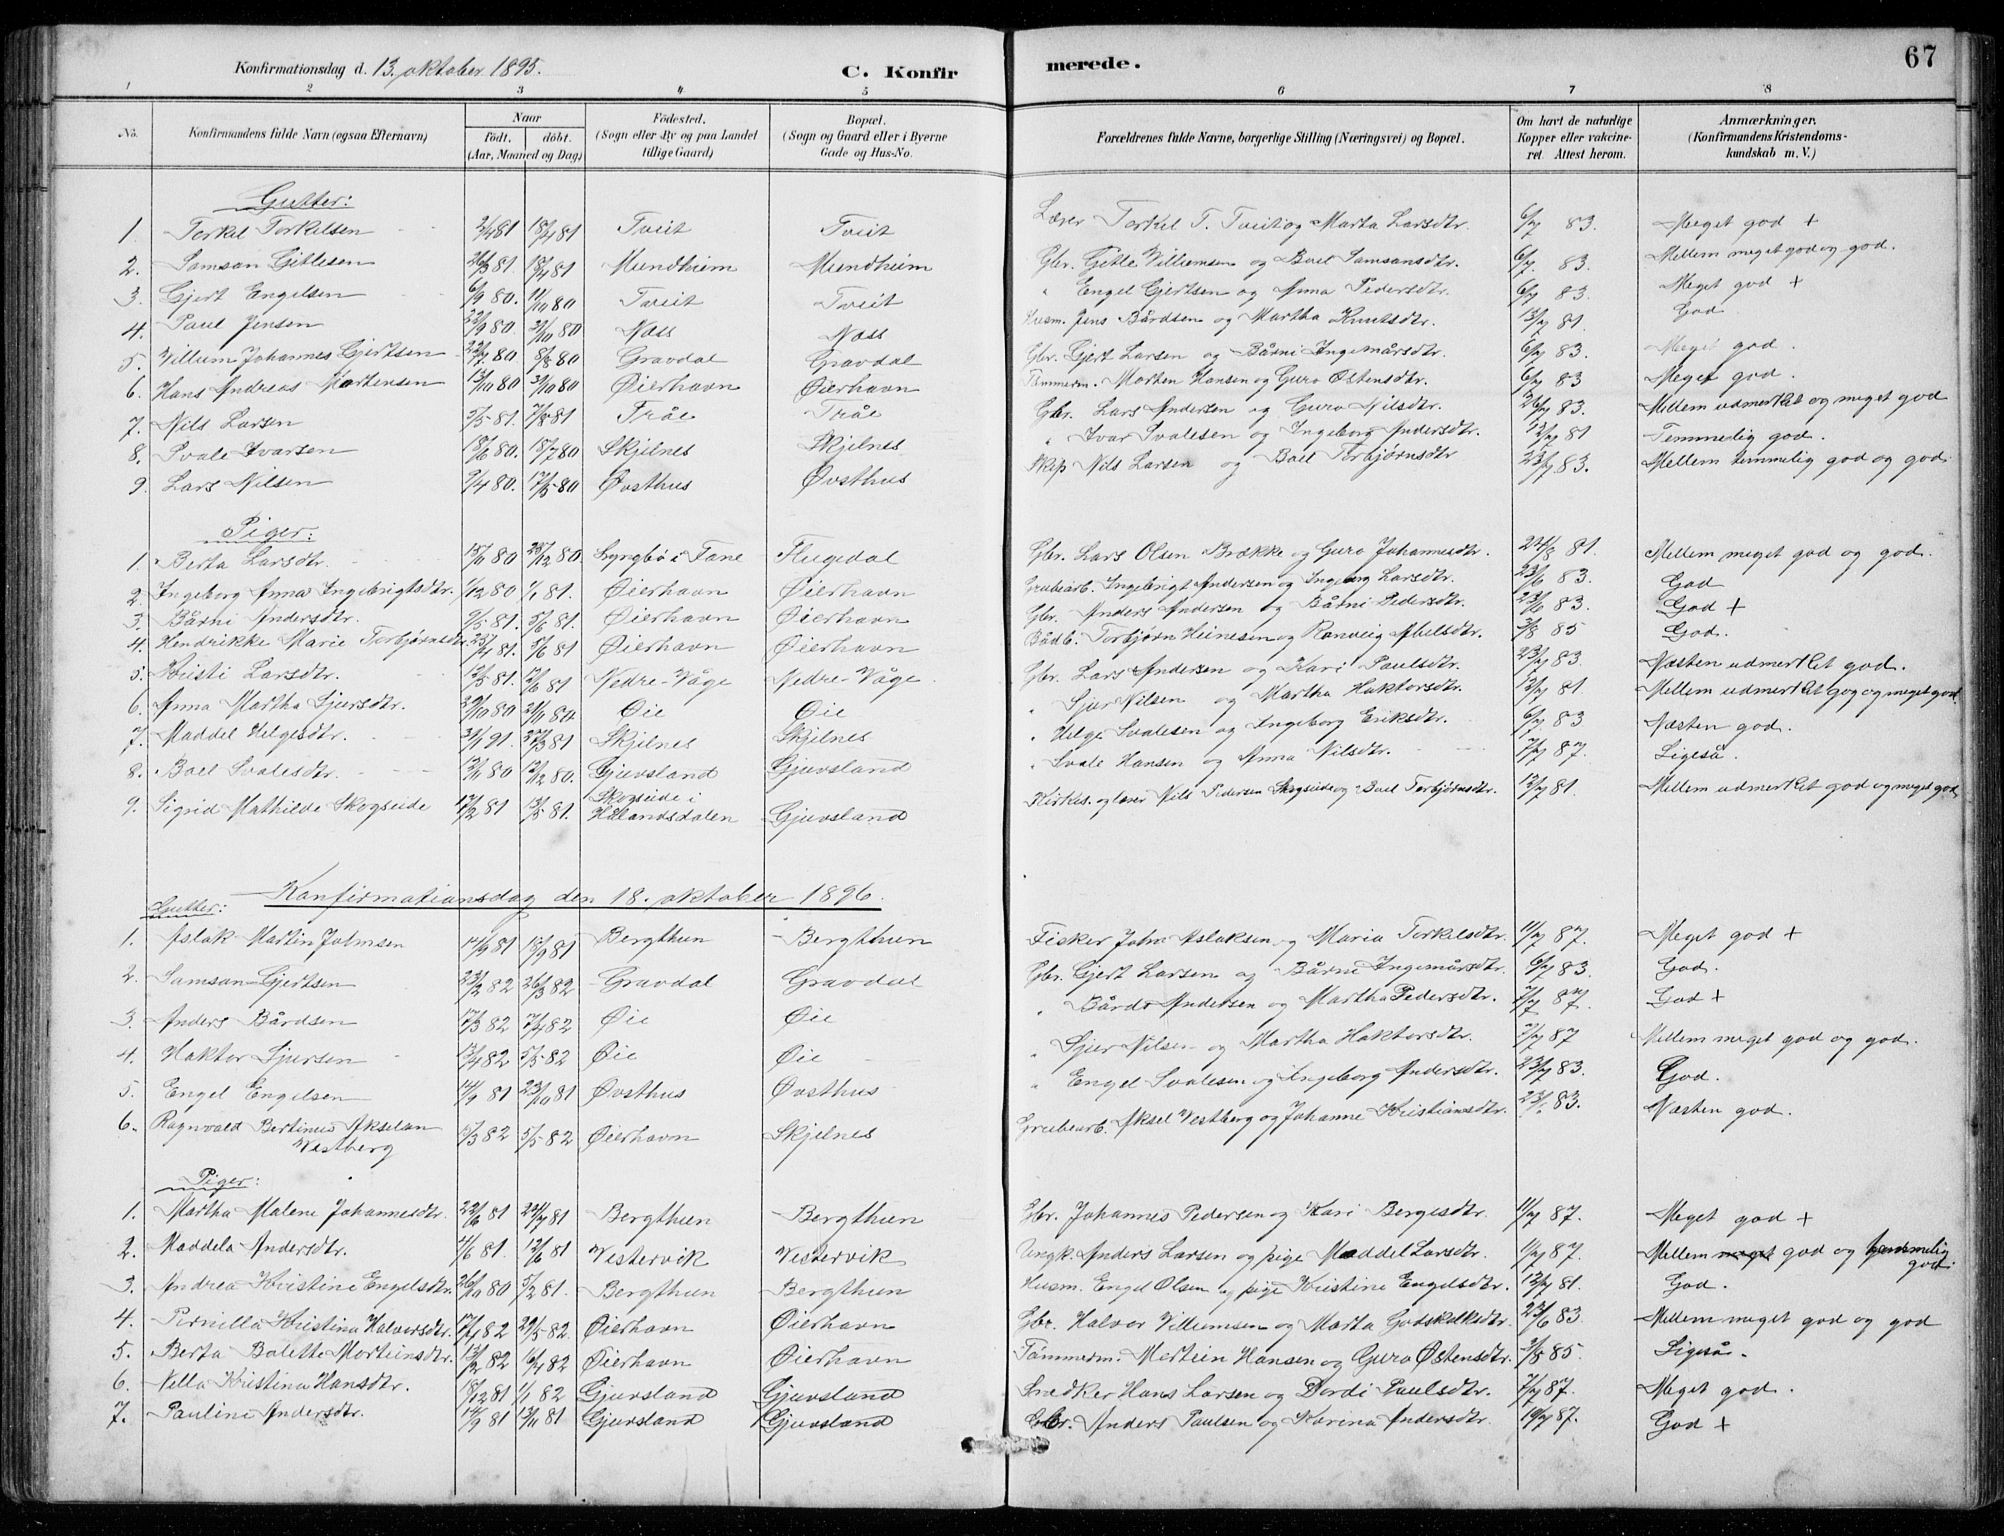 Konfirmationsdag d. 13. oktober 1895. C. Konfirmerede. 67
1 2 3 4 5 6 7 8
No. Konfirmandens fulde Navn (ogsaa Efternavn) Naar født. døbt. (Aar, Maaned og Dag) Fødested. (Sogn eller By og paa Landet tillige Gaard) Bopæl. (Sogn og Gaard eller i Byerne Gade og Hus-No. Forældrenes fulde Navne, borgerlige Stilling (Næringsvei) og Bopæl. Om havt de naturlige Kopper eller vakcineret Attest herom. Anmærkninger. (Konfirmandens Kristendomskundskab m. V.)
Gutter:
1. Torkel Torkelsen 2/4 81 18/4 81 Tveit Tveit Lærer Torkel T. Tveit og Marta Larsdtr. 6/7 83 Meget god +
2. Samson Gitlesen 26/3 81. 18/4 81 Mundheim Mundheim Gbr. Gitle Villiemsen og Boel Samsonsdtr. 6/7. 83 Mellem meget god og god.
3. Gjert Engelsen 6/9 80. 11/10 80 Tveit Tveit " Engel Gjertsen og Anna Pedersdtr. 6/7 83 Meget god +
4. Paul Jensen 22/9 80. 31/10 80 Næss Næss Husm. Jens Bårdsen og Martha Knutsdtr. 13/7 81 God
5. Villum Johannes Gjertsen 22/7 80 8/8 80 Gravdal Gravdal Gbr. Gjert Larsen og Bårni Ingemårsdtr. 6/7 83. Meget god.
6. Hans Andreas Mortensen 13/10 80 31/10 80 Øierhavn Øierhavn Tømmerm. Morten Hansen og Guro Østensdtr. 6/7 83 Meget god.
7. Nils Larsen 5/5 81. 7/8 81 Tråe Tråe Gbr. Lars Andersen og Guro Nilsdtr. 26/7 83. Mellem udmerket og meget god
8. Svale Ivarsen 18/6 80. 18/7 80 Skjelnes Skjelnes " Ivar Svalesen og Ingeborg Andersdtr. 12/7 81 Temmelig god.
9. Lars Nilsen 9/4 80. 17/5 80 Øvsthus Øvsthus Skip. Nils Larsen og Boel Torbjørnsdtr 23/7 83. Mellem temmelig god og god.
Piger:
1. Berta Larsdtr. 15/11 80 25/12 80. Lyngbø i Fane Flugedal Gbr. Lars Olsen Brække og Guro Johannesdtr. 24/8 81. Mellem meget god og god.
2. Ingeborg Anna Ingebrigtsdtr. 1/12 80 1/1 81. Øierhavn Øierhavn Grubearb. Ingebrigt Andersen og Ingeborg Larsdtr. 23/6 83. God
3. Bårni Andersdtr. 9/5 81. 5/6 81 Øierhavn Øierhavn Gbr. Anders Andersen og Bårni Pedersdtr. 23/6 83. God +
4. Hendrikke Marie Torbjørnsdtr. 25/4 81. 5/6 81 Øierhavn Øierhavn Bådb. Torbjørn Heinesen og Ranveig Abelsdtr. 3/8 85 God.
5. Kristi Larsdtr. 12/5 81. 12/6 81 Nedre-Våge Nedre-Våge Gbr. Lars Andersen og Kari Paulsdtr. 23/7 83. Næsten udmerket god.
6. Anna Martha Sjursdtr. 29/10 80 21/11 80. Øie Øie " Sjur Nilsen og Martha Haktorsdtr. 12/7 81. Mellem udmerket gog og meget god.
7. Maddel Helgesdtr. 31/1 91. 27/3 81 Skjelnes Skjelnes " Helge Svalesen og Ingeborg Eriksdtr. 6/7 83 Næsten god.
8. Boel Svalesdtr. 13/11 80 12/12 80. Gjuvsland Gjuvsland " Svale Hansen og Anna Nilsdtr. 7/7 87. Ligeså.
9. Sigrid Mathilde Skogseide 17/2 81 13/5 81. Skogseide i Hålandsdalen Gjuvsland Kirkes. og lærer Nils Pedersen Skogseide og Boel Torbjørnsdtr. 12/7 81. Mellem udmerket god og meget god
Konfirmationsdag den 18. oktober 1896.
Gutter:
1. Aslak Martin Johnsen 14/9 81 13/9 81 Bergthun Bergthun Fisker John Aslaksen og Maria Torkelsdtr. 11/7 87. Meget god +
2. Samson Gjertsen 23/2 82 26/3 82 Gravdal Gravdal Gbr. Gjert Larsen og Bårni Ingemårsdtr. 6/7 83. God.
3. Anders Bårdsen 17/3 82 7/4 82 Øie Øie " Bårdt Andersen og Martha Pedersdtr. 7/7 87. God +
4. Haktor Sjursen 13/4 82 5/5 82 Øie Øie " Sjur Nilsen og Martha Haktorsdtr. 7/7 87 Mellem meget god og god.
5. Engel Engelsen 14/9 81 23/10 81 Øvsthus Øvsthus " Engel Svalesen og Ingeborg Andersdtr. 23/7 83. God.
6. Ragnvald Bertinus Akselan Vestberg 5/3 82 5/5 82 Øierhavn Skjelnes Grubearb. Aksel Vestberg og Johanne Kristiansdtr. 23/ 83. Næsten god.
Piger:
1. Martha Malene Johannesdtr. 22/6 81 24/7 81 Bergthun Bergthun Gbr. Johannes Pedersen og Kari Bergesdtr. 11/7 87. Meget god +
2. Maddela Andersdtr. 4/6 81. 12/6 81 Vestervik Vestervik Ungk. Anders Larsen og pige Maddel Larsdtr. 11/7 87. Mellem meget god og temmelig god.
3. Andrea Kristine Engelsdtr. 26/10 80 5/2 81. Bergthun Bergthun Husm. Engel Olsen og pige Kristine Engelsdtr. 12/7 81. God.
4. Pernilla Kristina Halversdtr. 17/4 82 29/5 82. Øierhavn Øierhavn Gbr. Halvor Villiemsen og Marta Godskalksdtr. 23/6 83. Mellem meget god og god
5. Berta Bolette Morteinsdtr. 13/2 82 16/4 82 Øierhavn Øierhavn Tømmerm. Mortein Hansen og Guro Østensdtr. 3/8 85. Ligeså.
6. Nella Kristina Hansdtr. 18/12 81 1/1 82 Gjuvsland Gjuvsland Snedker Hans Larsen og Dordi Paulsdtr. 7/7 87. Meget god.
7. Pauline Andersdtr. 14/9 81 13/11 81 Gjuvsland Gjuvsland Gbr. Anders Paulsen og Karina Andersdtr. 19/7 87. God +